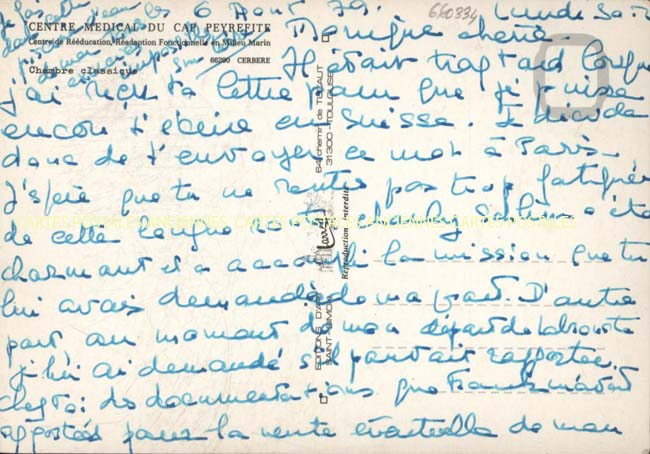 les 6 Août 79. Lundi soir
660334
CENTRE MEDICAL DU CAP PEYREFITE
Centre de Rééducation, Réadaption Fonctionnelle en Milieu Marin
66290 CERBERE
Chambre classique
Monique chérie.
Il était trop tard lorsque
j'ai reçu ta lettre pour que je puisse
encore t'écrire en Suisse. Je
donc de t'envoyer ce mot à Paris.
J'espère que tu ne rentres pas trop fatiguée
de cette longue route. a été
charmant et a accompli la mission que tu
lui avais demandé de ma part. D'autre
part au moment de mon départ de Labrouste
je lui ai demandé s'il pouvait rapporter
chez toi des documentations que Franck m'avait
apportées pour la vente éventuelle de mon
EDITIONS D'ART
64, chemin de TUCAUT
31300 - TOULOUSE
Reproduction interdite
CARTES POSTALES ANCIENNES